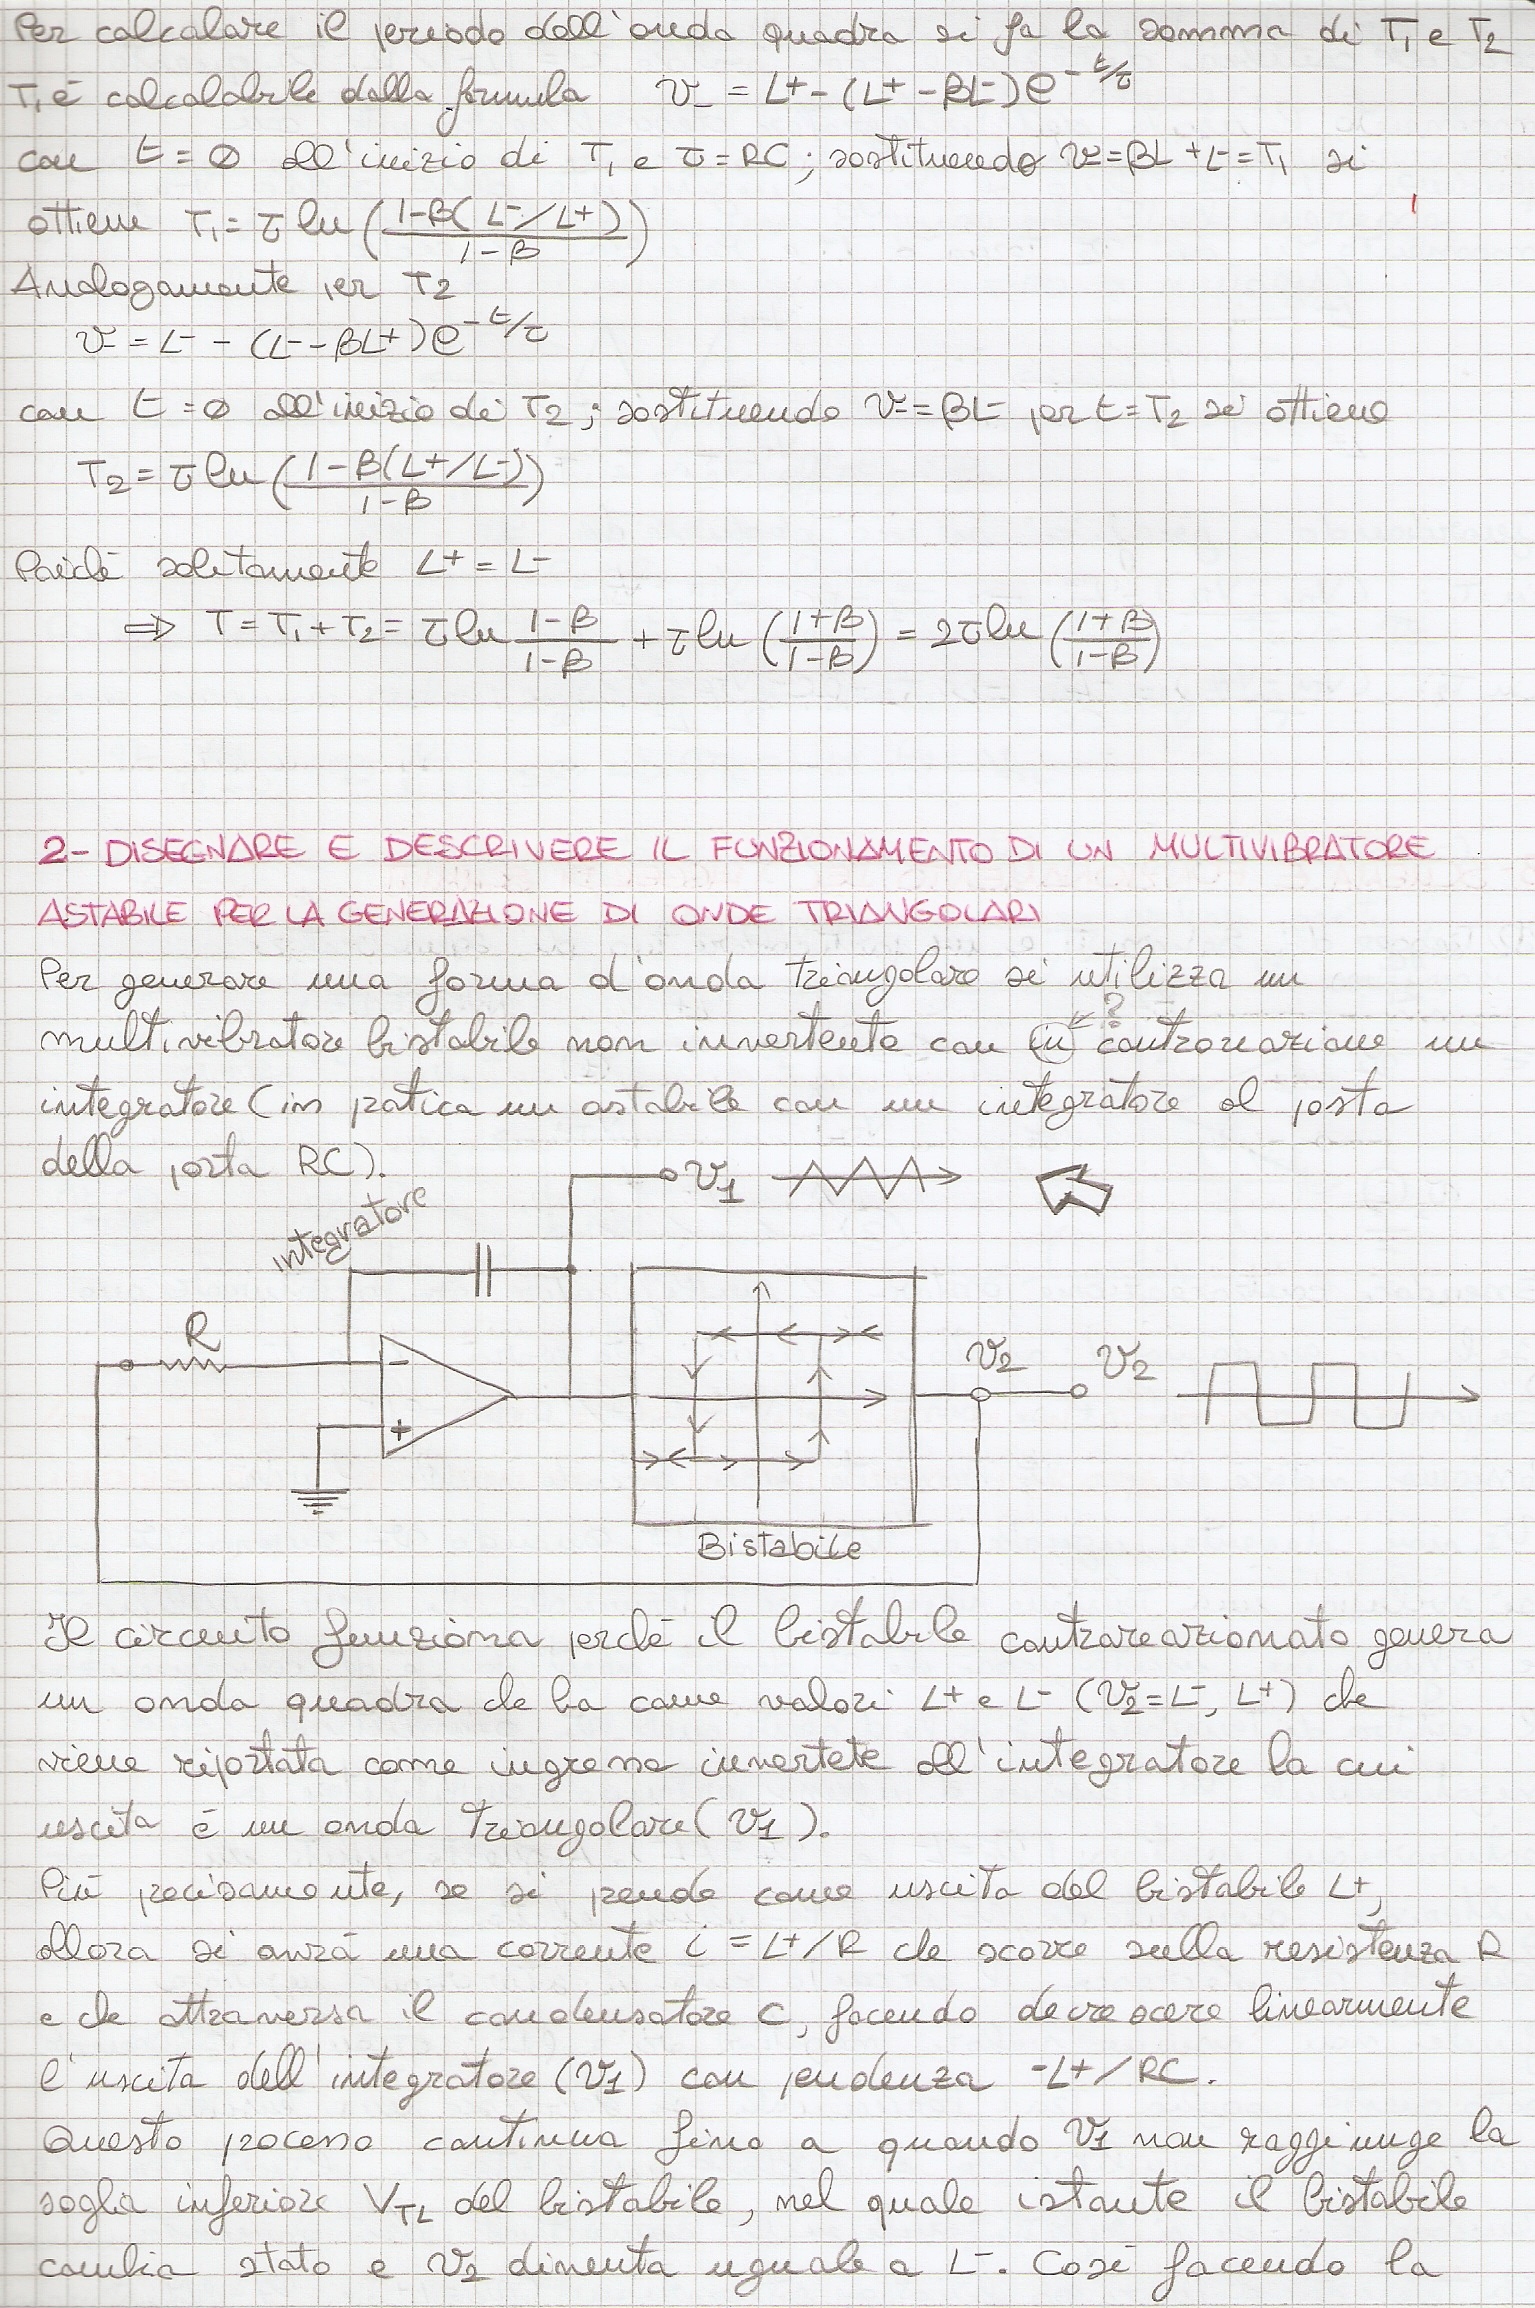 Per calcolare il periodo dell'onda quadra si fa la somma di T₁ e T₂
T₁ è calcolabile dalla formula v₋ = L⁺ - (L⁺ - βL⁻)e^(-t/τ)
con t = ∅ all'inizio di T₁ e τ = RC; sostituendo v₋ = βL⁺ t = T₁ si
ottiene T₁ = τ ln((1-β(L⁻/L⁺))/(1-β))
Analogamente per T₂
v₋ = L⁻ - (L⁻ - βL⁺)e^(-t/τ)
con t = ∅ all'inizio di T₂; sostituendo v₋ = βL⁻ per t = T₂ si ottiene
T₂ = τ ln((1-β(L⁺/L⁻))/(1-β))
Poiché solitamente L⁺ = L⁻
⇒ T = T₁ + T₂ = τ ln (1-β)/(1-β) + τ ln((1+β)/(1-β)) = 2τ ln((1+β)/(1-β))
2- DISEGNARE E DESCRIVERE IL FUNZIONAMENTO DI UN MULTIVIBRATORE
ASTABILE PER LA GENERAZIONE DI ONDE TRIANGOLARI
Per generare una forma d'onda triangolare si utilizza un
?
multivibratore bistabile non invertente con in controreazione un
integratore (in pratica un astabile con un integratore al posta
della porta RC).
v₁
integratore
R
-
+
v₂
v₂
Bistabile
Il circuito funziona perché il bistabile controreazionato genera
un onda quadra che ha come valori L⁺ e L⁻ (v₂ = L⁻, L⁺) che
viene riportata come ingresso invertete all'integratore la cui
uscita è un onda triangolare (v₁).
Più precisamente, se si prende come uscita del bistabile L⁺,
allora si avrà una corrente i = L⁺/R che scorre sulla resistenza R
e che attraversa il condensatore C, facendo decrescere linearmente
l'uscita dell'integratore (v₁) con pendenza -L⁺/RC.
Questo processo continua fino a quando v₁ non raggiunge la
soglia inferiore V_TL del bistabile, nel quale istante il bistabile
cambia stato e v₂ diventa uguale a L⁻. Così facendo la